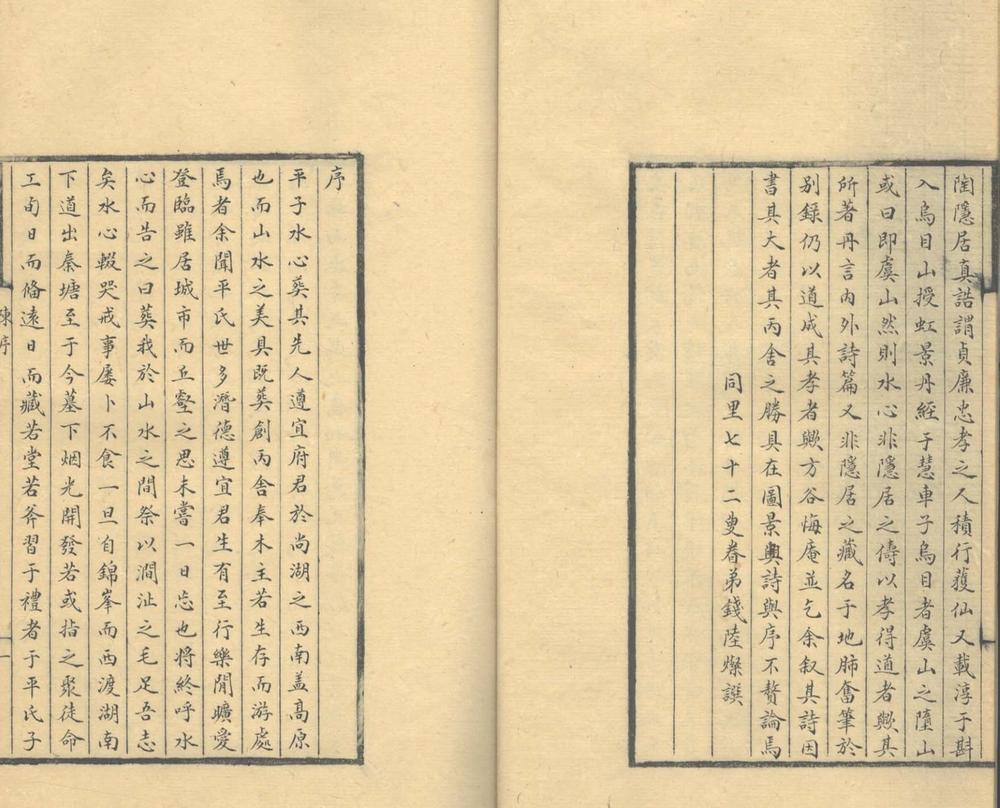 陶隱居真誥謂貞廉忠孝之人積行獲仙又載淳于斟
入烏目山授虹景丹經于慧車子烏目者虞山之隨山
或曰即虞山然則水心非隱居之儔以孝得道者歟其
所著丹言內外詩篇又非隱居之藏名于地肺奮筆於
別錄仍以道成其孝者歟方谷悔庵並乞余叙其詩因
書其大者其丙舍之勝具在圖景輿詩與序不贅論焉
同里七十二叟眷弟錢陸燦譔
序
平子水心葬其先人遵宜府君於尚湖之西南盖高原
也而山水之美具既葬創丙舍奉木主若生存而游處
焉者余聞平氏世多潛德遵宜君生有至行樂閒曠愛
登臨雖居城市而丘壑之思未嘗一日忘也將終呼水
心而告之曰葬我於山水之間祭以澗沚之毛足吾志
矣水心輟哭戒事屢卜不食一旦自錦峯而西渡湖南
下道出秦塘至于今墓下烟光開發若或指之聚徒命
工旬日而偹遠日而藏若堂若斧習于禮者于平氏子
陳序
一